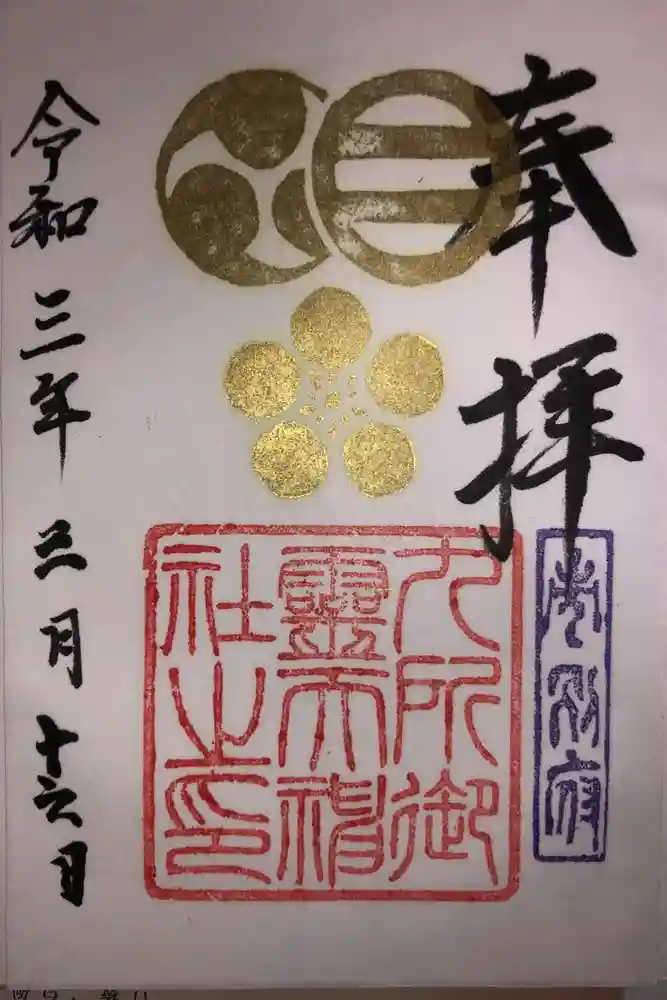 奉拝
九所御
靈天神
社之印
令和三年三月十六日